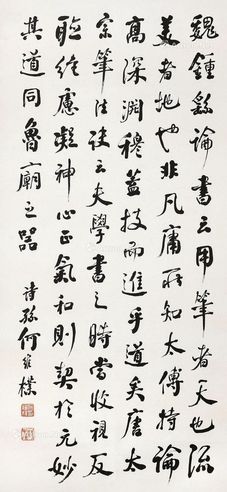 魏鍾繇論書云用筆者天也流
美者地也非凡庸所知太傅特論
高深淵穆蓋技而進乎道矣唐太
宗筆法訣云夫學書之時當收視反
聽絕慮凝神心正氣和則契於元妙
其道同魯廟之器
詩孫何維樸